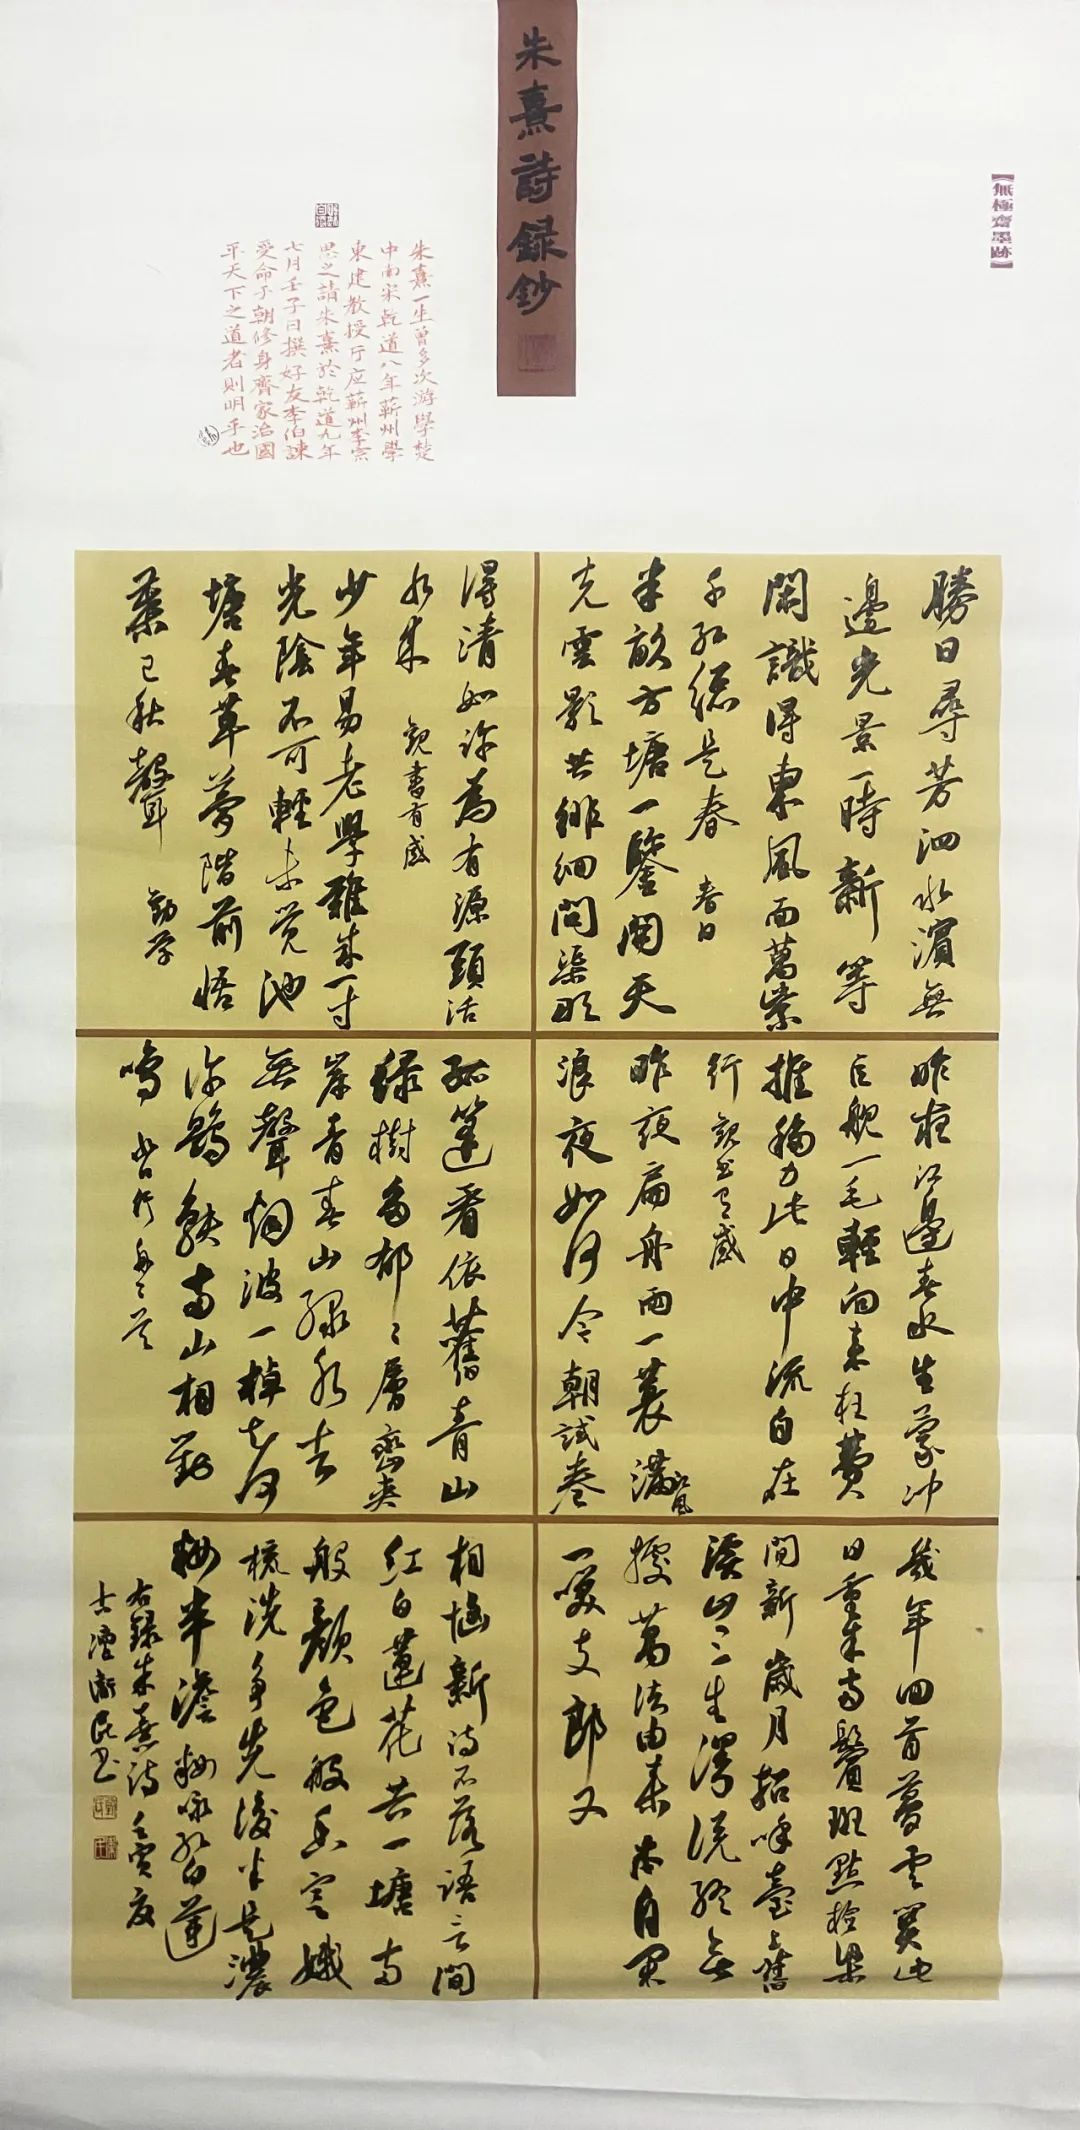 朱熹詩録鈔
【無極齋墨跡】
朱熹一生曾多次游學楚
中南宋乾道八年蕲州學
東建教授厅应蕲州李宗
思之請朱熹於乾道九年
七月壬子日撰好友李伯諫
受命于朝修身齊家治國
平天下之道者則明乎也
勝日尋芳泗水濱無
邊光景一時新等
閑識得東風面萬紫
千红總是春 春日
半畝方塘一鑒開天
光雲影共徘徊問渠那
得清如许為有源頭活
水來 觀書有感
少年易老學難成一寸
光陰不可輕未觉池
塘春草夢階前梧
葉已秋聲 勸学
昨夜江邊春水生蒙冲
巨舰一毛輕向来枉費
推移力此日中流自在
行 觀书有感
昨夜扁舟雨一蓑满江風
浪夜如何今朝試卷
孤篷看依舊青山
绿樹多郁々層巒夾
岸青春山绿水去
無聲烟波一棹知何
许鶗鴂两山相對
鳴
幾年回首夢雲關此
日重来两鬢斑點檢梁
間新歲月招呼臺上舊
溪山三生漫説终無
據萬法由来本自閑
一笑支郎又
相惱新诗不落語言間
红白蓮花共一塘两
般颜色一般香定
梳洗争先後半是濃
妝半澹妝 咏红白蓮
右録朱熹诗 壬寅夏